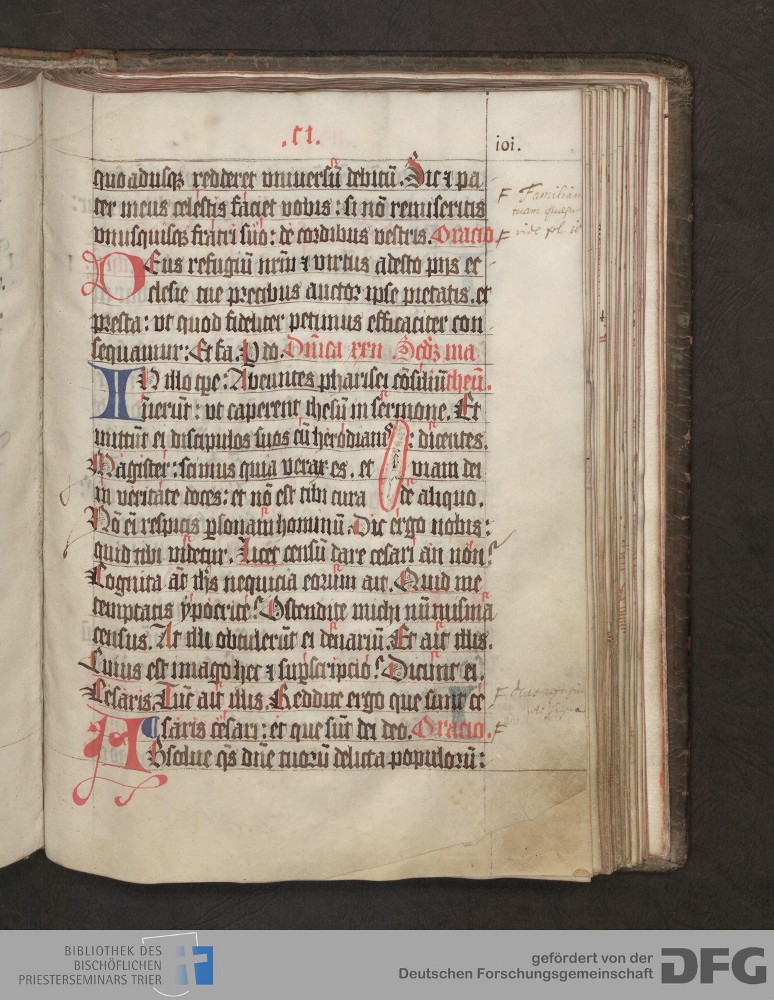 .CI.
ioi.
quoadusqꝫ redderet vniuersū debitū. Sic ⁊ pa
ter meus celestis faciet vobis : si nō remiseritis
vnusquisqꝫ fratri suo : de cordibus vestris. Oracio
Deus refugiū nr̄m ⁊ virtus adesto pijs ec
clesie tue precibus auctor ipse pietatis. et
presta : vt quod fideliter petimus efficaciter con
sequamur : Et fa. P do. Dn̄ica xxii Scdꝫ ma
IN illo tꝑe : Abeuntes pharisei cōsiliū theū.
inierūt : vt caperent ihesū in sermone. Et
mittūt ei discipulos suos cū herodianis : dicentes.
Magister : scimus quia verax es. et viam dei
in veritate doces : et nō est tibi cura de aliquo.
Nō ei respicis ꝑsonam hominū. Dic ergo nobis :
quid tibi videtur. Licet censū dare cesari an non?
Cognita aūt ih̄s nequicia eorum ait. Quid me
temptatis ypocrite? Ostendite michi numisma
census. At illi obtulerūt ei denariū. Et ait illis.
Cuius est imago hec ⁊ suprscripcio? Dicunt ei.
Cesaris. Tūc ait illis. Reddite ergo que sunt ce
saris cesari : et que sūt dei deo. Oracio.
Absolue qs dn̄e tuorū delicta populorū :
Familiam
tuam
vide fol
BIBLIOTHEK DES
BISCHÖFLICHEN
PRIESTERSEMINARS TRIER
gefördert von der
Deutschen Forschungsgemeinschaft
DFG